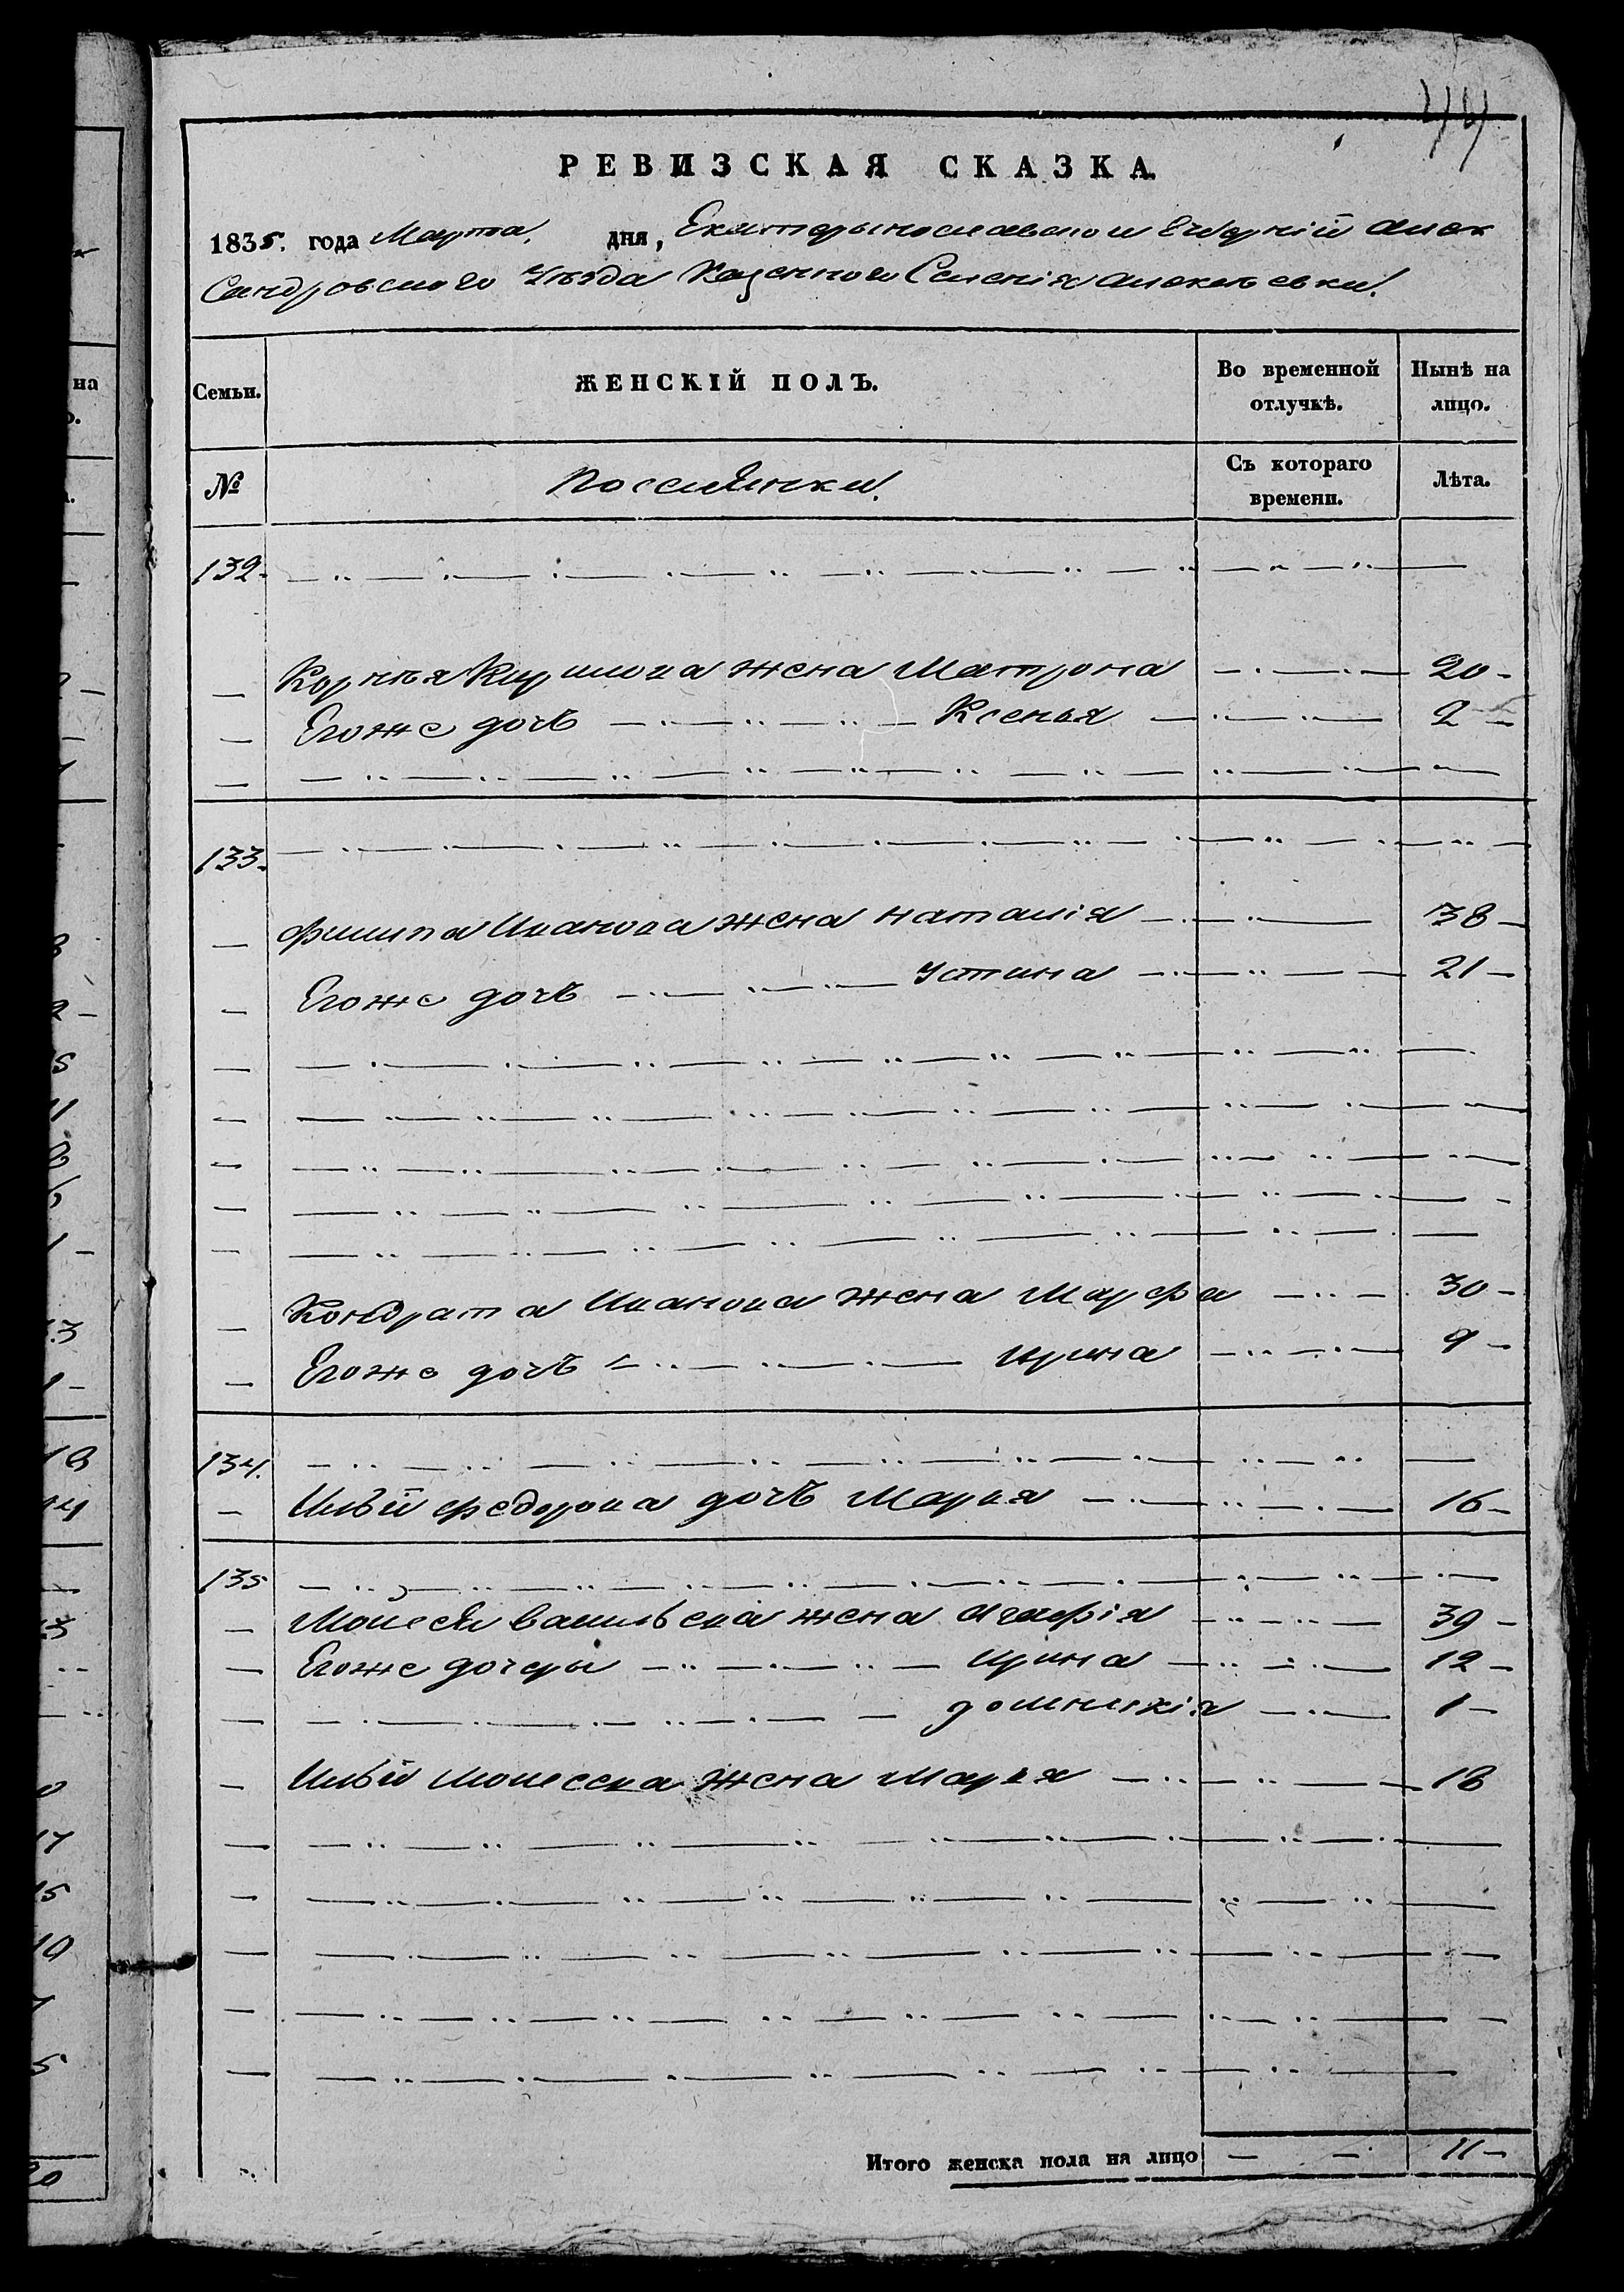 44
РЕВИЗСКАЯ СКАЗКА
1835. года Марта. дня, Екатериославской Губерніи Алек
сандровского Уѣзда Казенного Селенія Алексѣевки.
Семьи.
ЖЕНСКІЙ ПОЛЪ.
Во временной отлучкѣ.
Нынѣ на лицо.
№
Поселянки.
Съ котораго времени.
Лѣта.
132.
Корнѣя Кирилова жена Матрона 20
Егоже дочь Ксенья 2
133.
Филипа Иванова жена Наталія 38
Егоже дочь Устина 21
Кондрата Иванова жена Марфа 30
Егоже дочь Ирина 9
134.
Ильи Федорова дочь Марья 16
135
Мойсея Васильева жена Агафія 39
Егоже дочеры Ирина 12
Домникія 1
Ильи Моисеева жена Марья 18
Итого женска пола на лицо 11
на